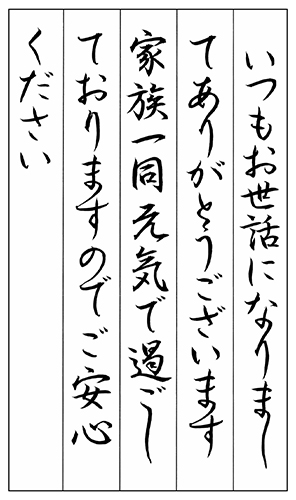 いつもお世話になりまし
てありがとうございます
家族一同元気で過ごし
ておりますのでご安心
ください